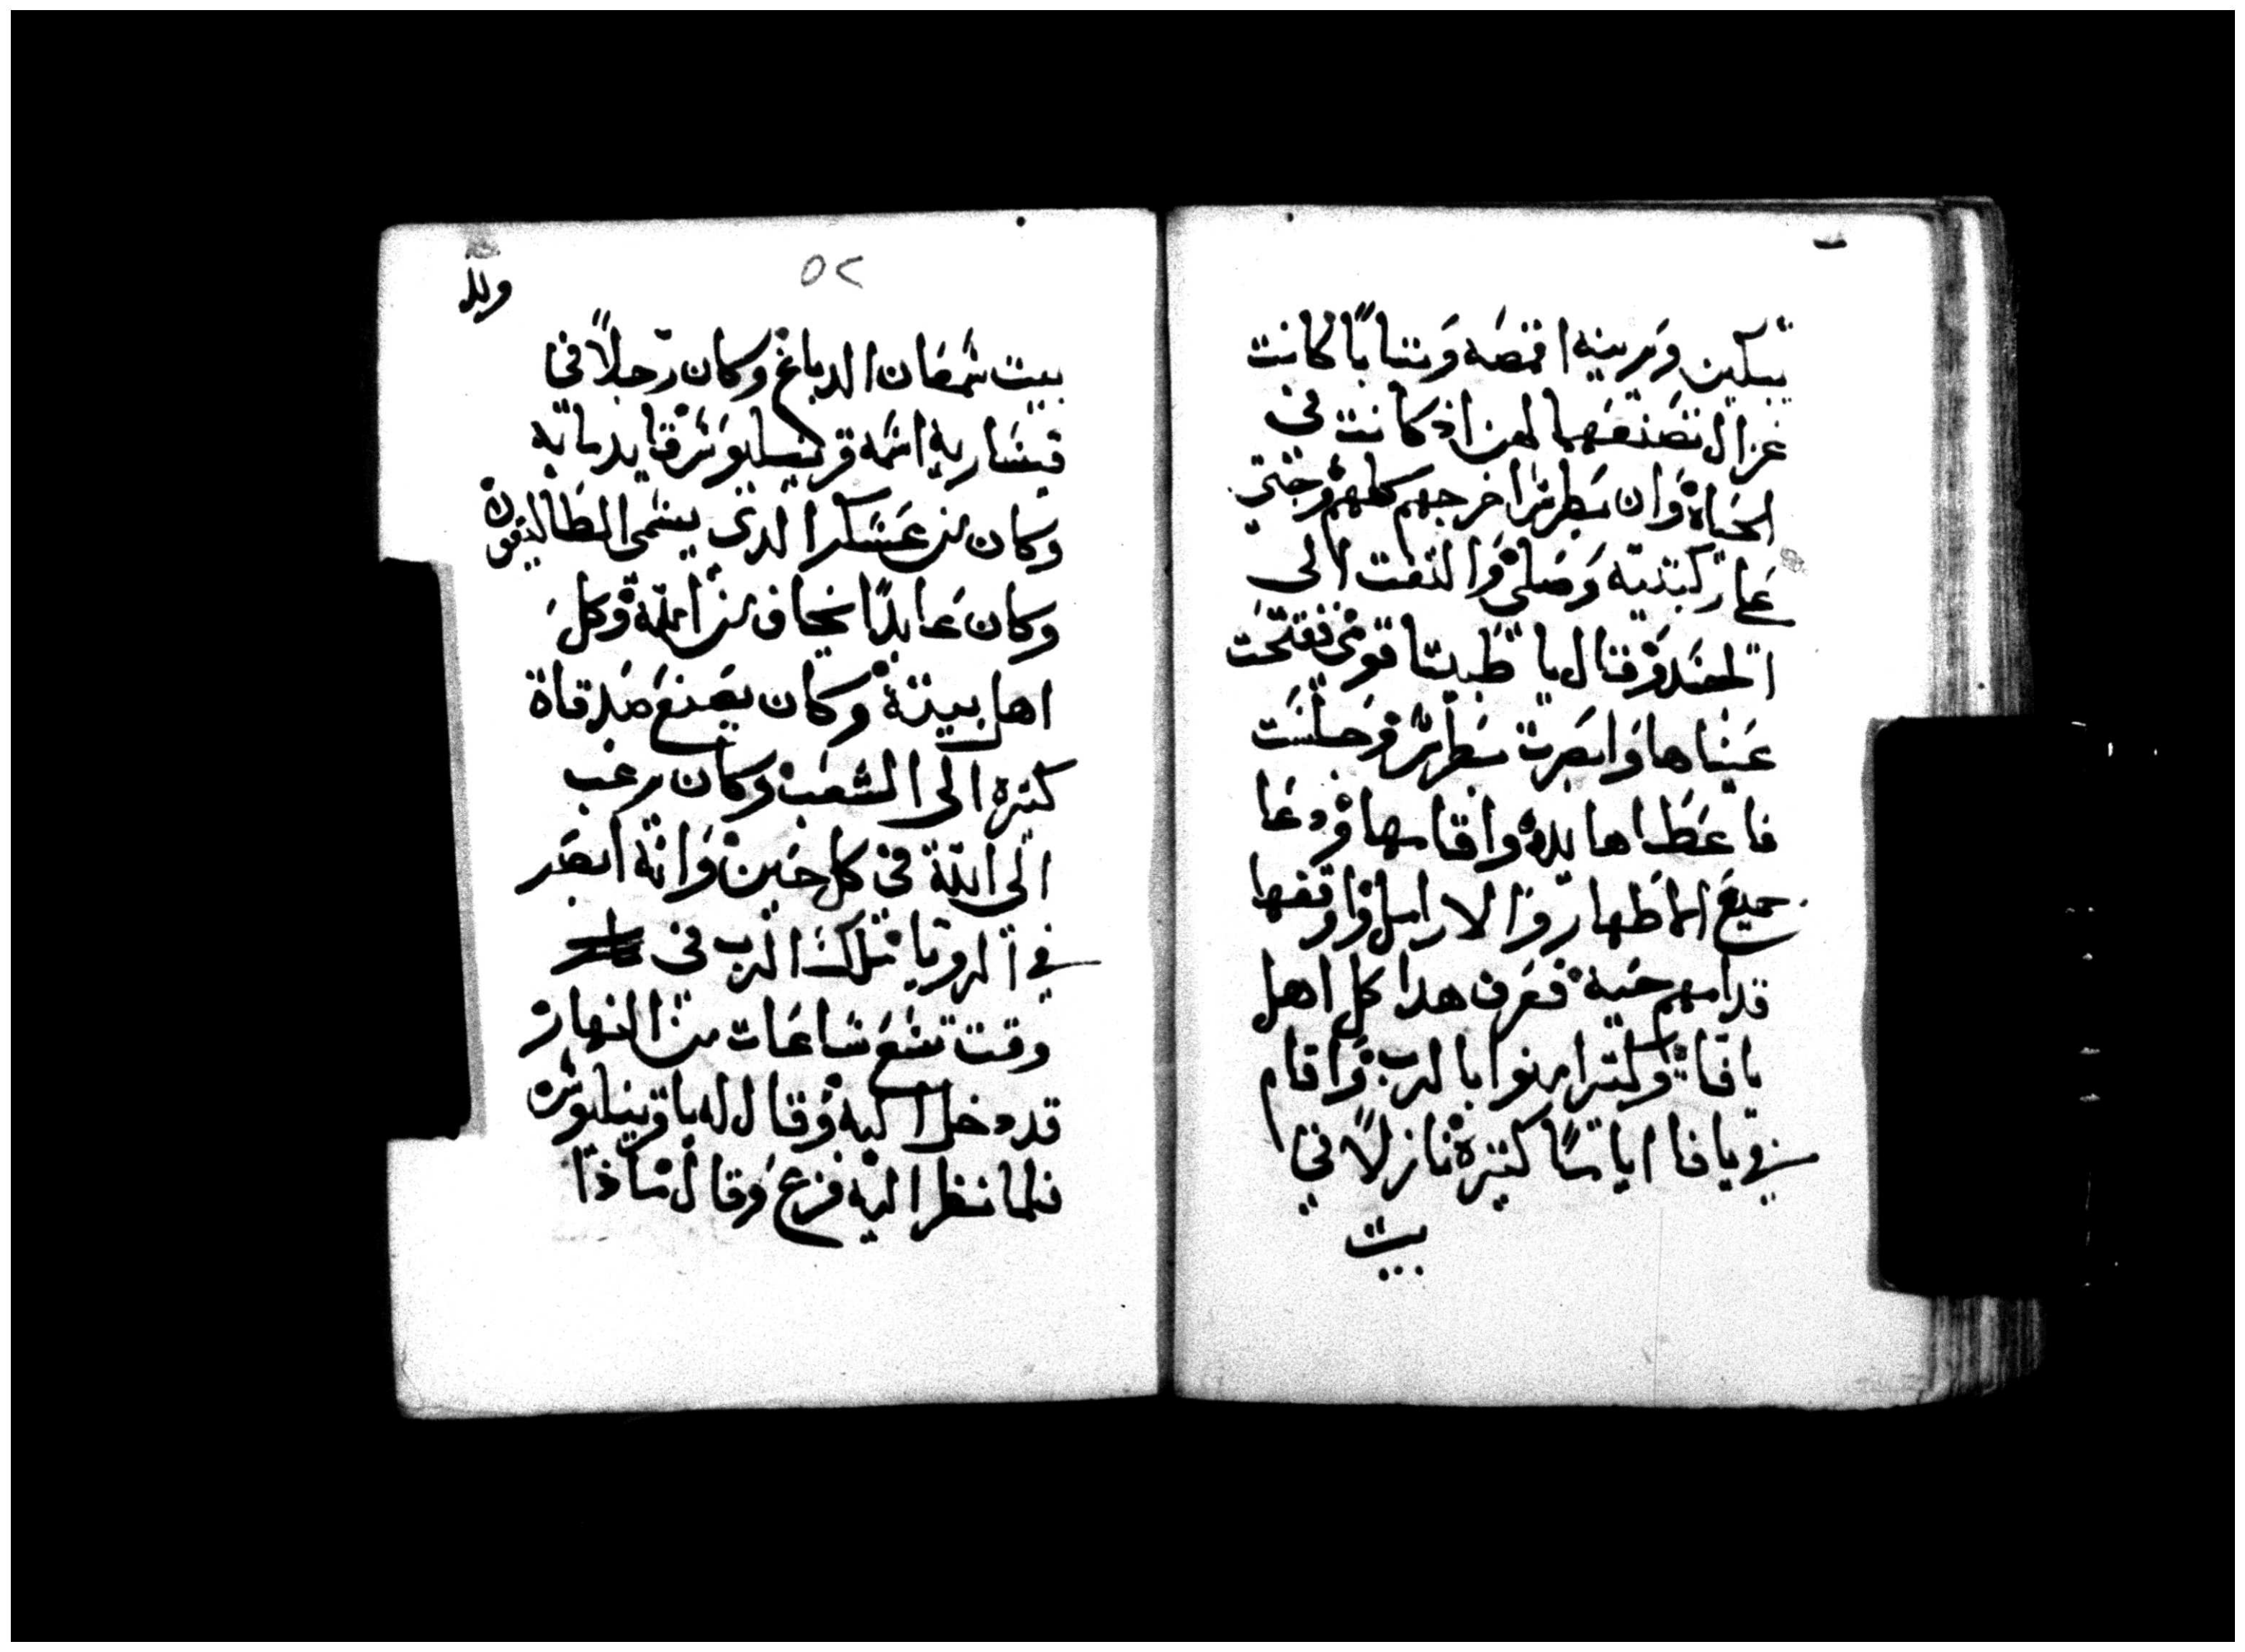 يبكين ويرينه اقمصه وتيابًا كانت
غزال تصنعهما لهن اذ كانت في
الحياة وان بطرس اخرجهم كلهم وجتي
على ركبتيه وصلى والتفت الى
الجسد وقال يا طبيتا قومي ففتحت
عيناها وابصرت بطرس فجلست
فاعطاها يده واقامها ودعا
جميع الاطهار والارامل واوقفها
قدامهم حيه فعرف هدا كل اهل
يافا وكتير امنوا بالرب واقام
في يافا اياما كتيرة نازلاً في
بيت
٥٢
بيت شمعان الدباغ وكان رجلاً في
قيساريه اسمه قرنيليوس قايد مايه
وكان من عسكر الدي يسمى الطاليقون
وكان عابدًا يخاف من الله وكل
اهل بيته وكان يصنع صدقاة
كتيره الى الشعب وكان يرغب
الى الله في كل حين وانه ابصر
في الرويا ملاك الرب في
وقت تسع ساعات من النهار
قد دخل اليه وقال له يا قرنيليوس
فلما نظر اليه فزع وقال ماذا